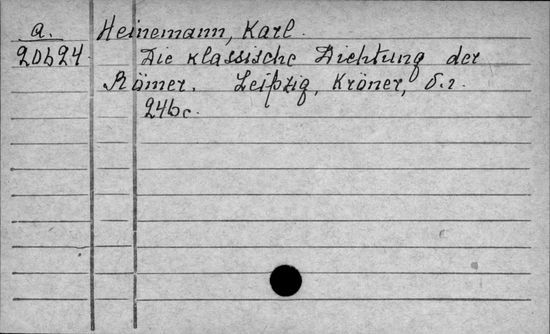 a. Heinemann, Karl.
20624 Die klassische Dichtung der
Römer. Leipzig, Kröner, б.г.
246 с.